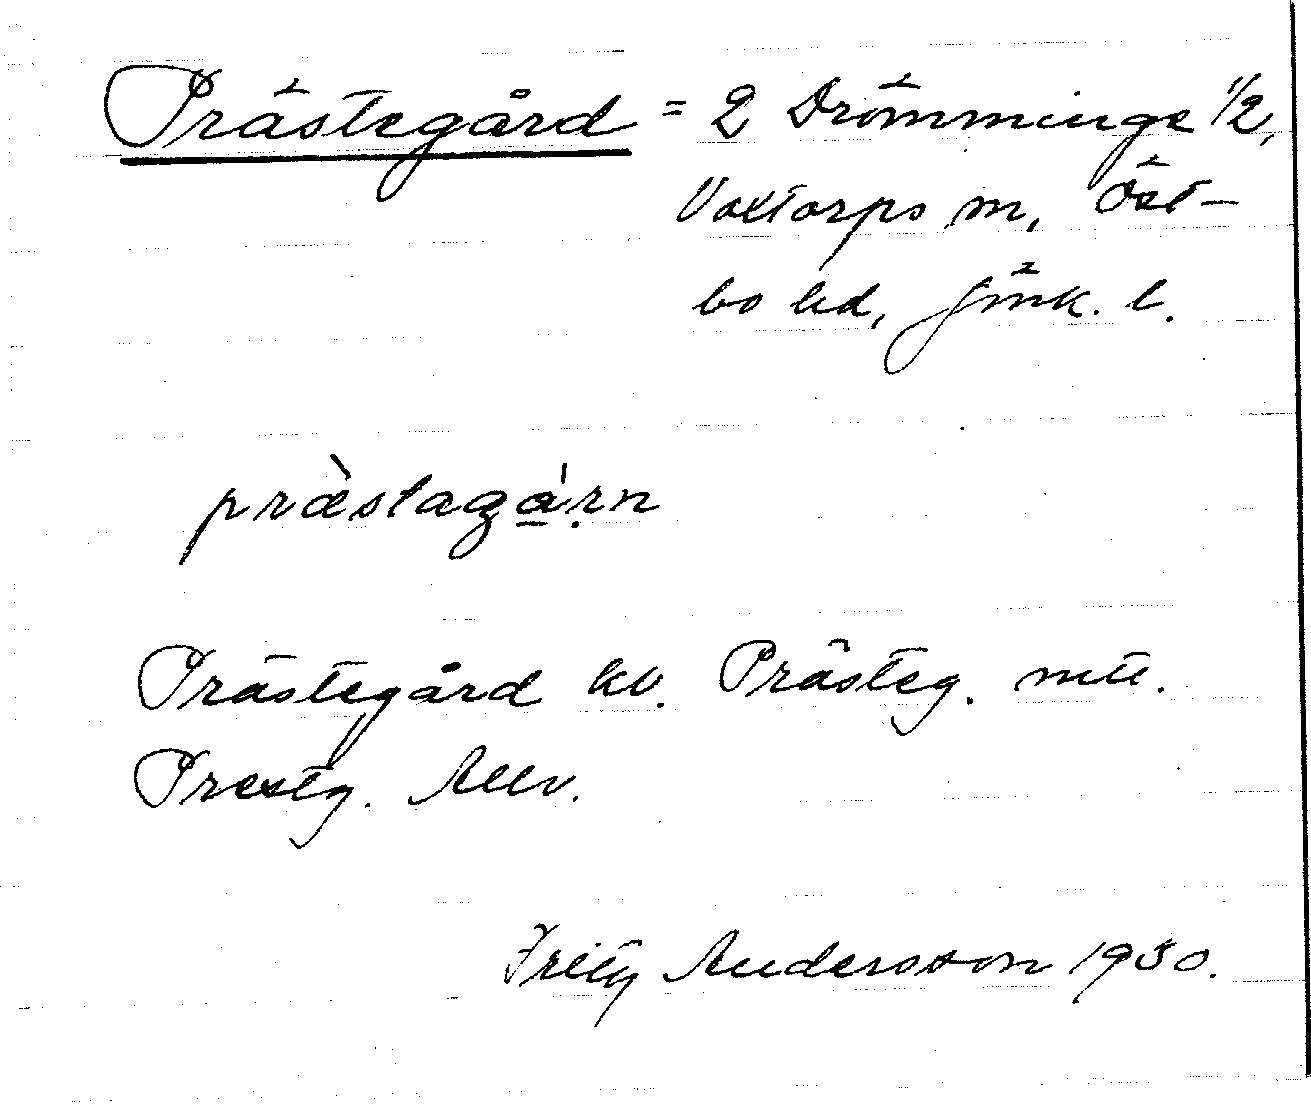 Prästegård = 2 Drömminge 1/2,
Voxtorps sn, Öst-
bo hd, Jönk. l.
præ̀stagá̱ṛn
Prästegård kv. Prästeg. mtl.
Prestg. Allv.
Fritz Andersson 1930.